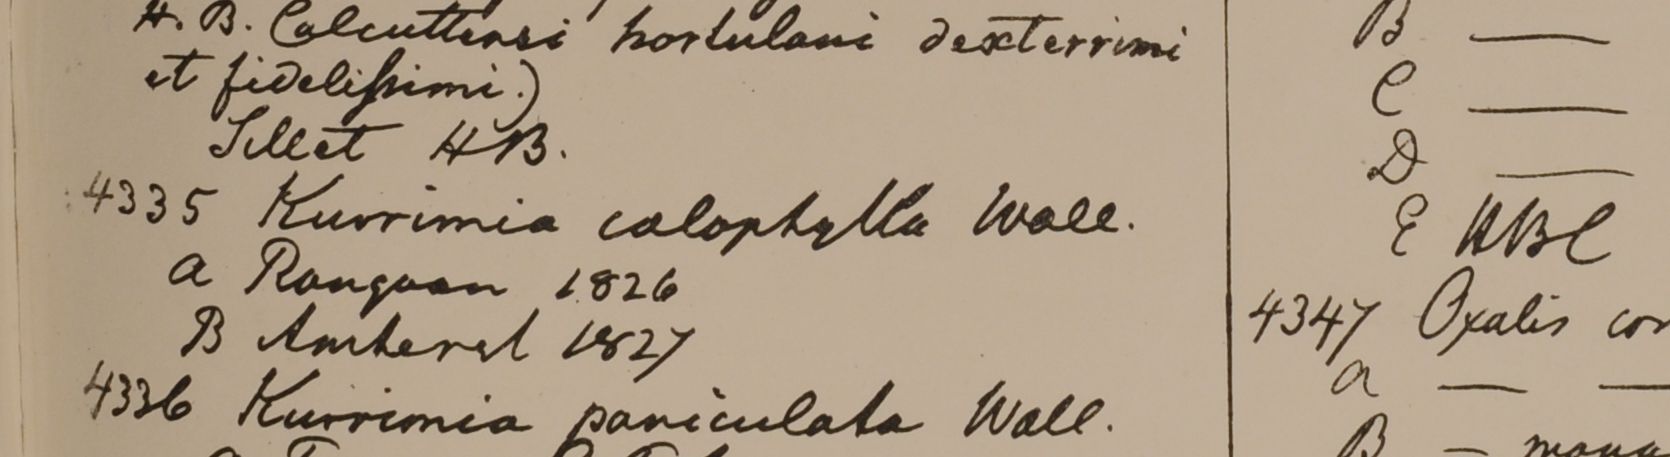 H. B. Calcuttensi hortulani dexterrimi
et fidelissimi.)
Sillet HB.
4335 Kurrimia calophylla Wall.
a Rangoon 1826
B Amherst 1827
4336 Kurrimia paniculata Wall.
B —
C —
D —
E HBC
4347 Oxalis cor
a — —
B —